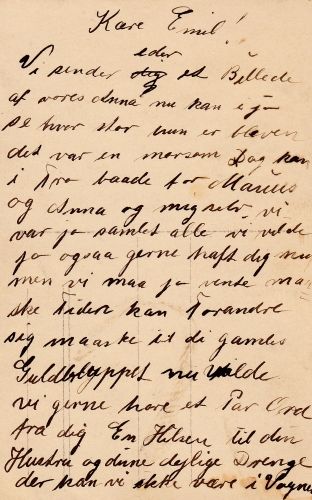 Kære Emil!
eder
Vi sender dig et Billede
af vores Anna nu kan i jo
se hvor stor hun er bleven
det var en morsom Dag kan
i Tro baade for Marius
og Anna og mig selv vi
var jo samlet alle vi vilde
jo ogsaa gerne haft dig nu
men vi maa jo vente maa
ske Tiden kan Forandre
sig maaske til di gamles
Guldbryllppet nu vilde
vi gerne have et Par Ord
fra dig En Hilsen til din
Hustru og dine dejlige Drenge
der kan vi
være i